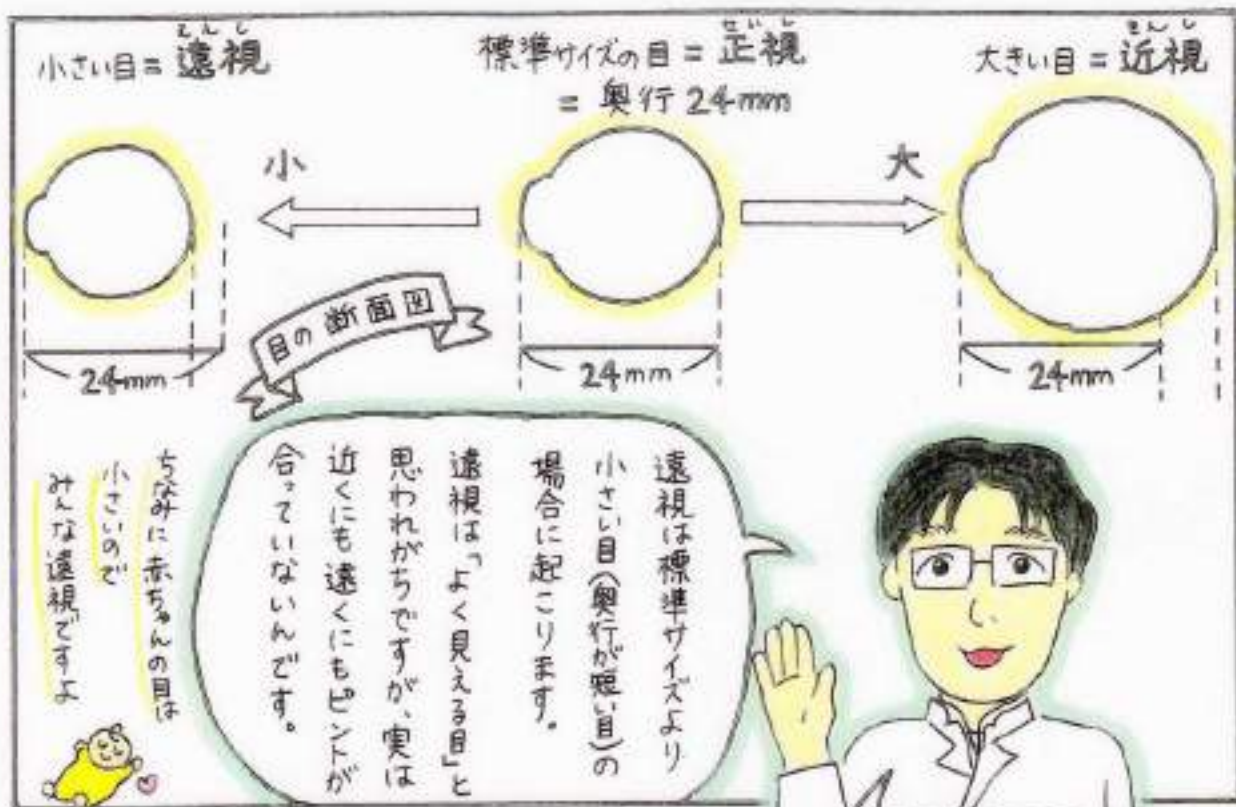 えんし
小さい目=遠視
せいし
標準サイズの目=正視
=奥行24mm
きんし
大きい目=近視
小
大
24mm
24mm
24mm
目の断面図
遠視は標準サイズより
小さい目(奥行が短い目)の
場合に起こります。
遠視は「よく見える目」と
思われがちですが、実は
近くにも遠くにもピントが
合っていないんです。
ちなみに赤ちゃんの目は
小さいので
みんな遠視ですよ